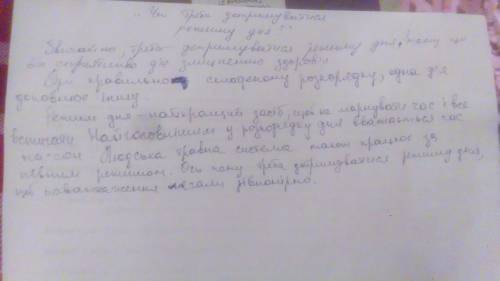 "Чи треба дотримуватися
режиму дня?"
Звичайно, треба дотримуватися режиму дня, тому що
він сприятливо діє зміцненню здоров'я
При правильно складеному розпорядку, одна дія
доповнює іншу.
Режим дня - найкращий засіб, щоб не марнувати час і все
встигати. Найголовнішим у розпорядку дня вважається час
на сон. Людська травна система також працює за
певним режимом. Ось чому треба дотримуватися режиму дня,
щоб навантаження лягали рівномірно.